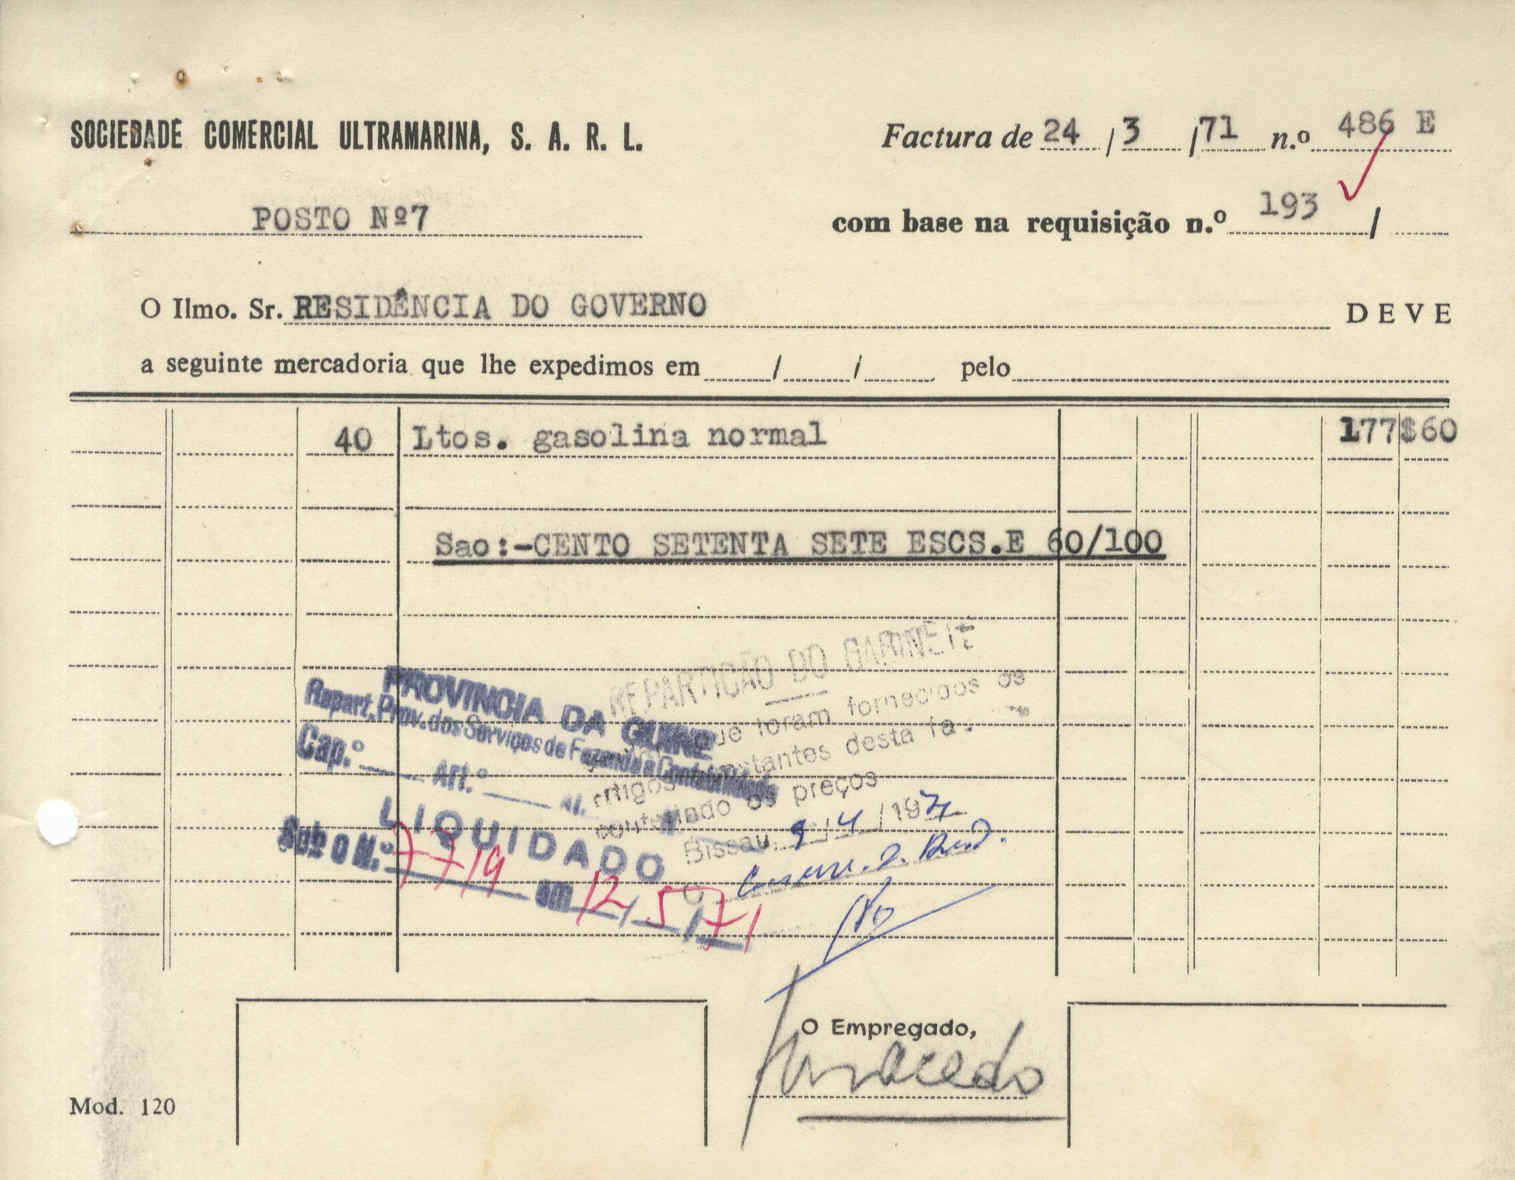 SOCIEDADE COMERCIAL ULTRAMARINA, S. A. R. L.
Factura de 24 / 3 / 71 n.º 486 E
POSTO Nº7
com base na requisição n.º 193 /
O Ilmo. Sr. RESIDÊNCIA DO GOVERNO DEVE
a seguinte mercadoria que lhe expedimos em / / pelo
40 Ltos. gasolina normal 177$60
Sao:-CENTO SETENTA SETE ESCS.E 60/100
REPARTIÇÃO DO GABINETE
que foram fornecidos os
artigos constantes desta fa
conferido os preços
Bissau, 9 / 4 / 1971
PROVINCIA DA GUINÉ
Repart. Prov. dos Serviços de Fazenda e Contabilidade
Cap.º Art.º
LIQUIDADO
Sub o N.º 7719 em 12 / 5 / 71
O Empregado,
Mod. 120